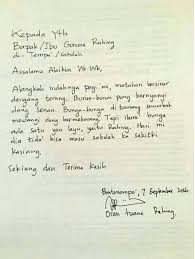 Kepada Yth
Bapak/Ibu Guruna Rahing
di- Tempat/Sekolah
Assalamu Alaikum Wr. Wb,
Alangkah indahnya pagi ini, matahari bersinar
dengang terang. Burung-burung pung bernyanyi
dang senang. Bunga-bunga di tamang semerbak
mewangi dang bermekarang. Tapi ibara' bunga
ada satu yan layu, yaitu Rahing. Hari ini
dia tida' bisa masuk sakolah ka sakitki
kasiang.
Sekiang dan Terima Kasih
Bontonompo, 7 September
Orang Tuana Rahing.